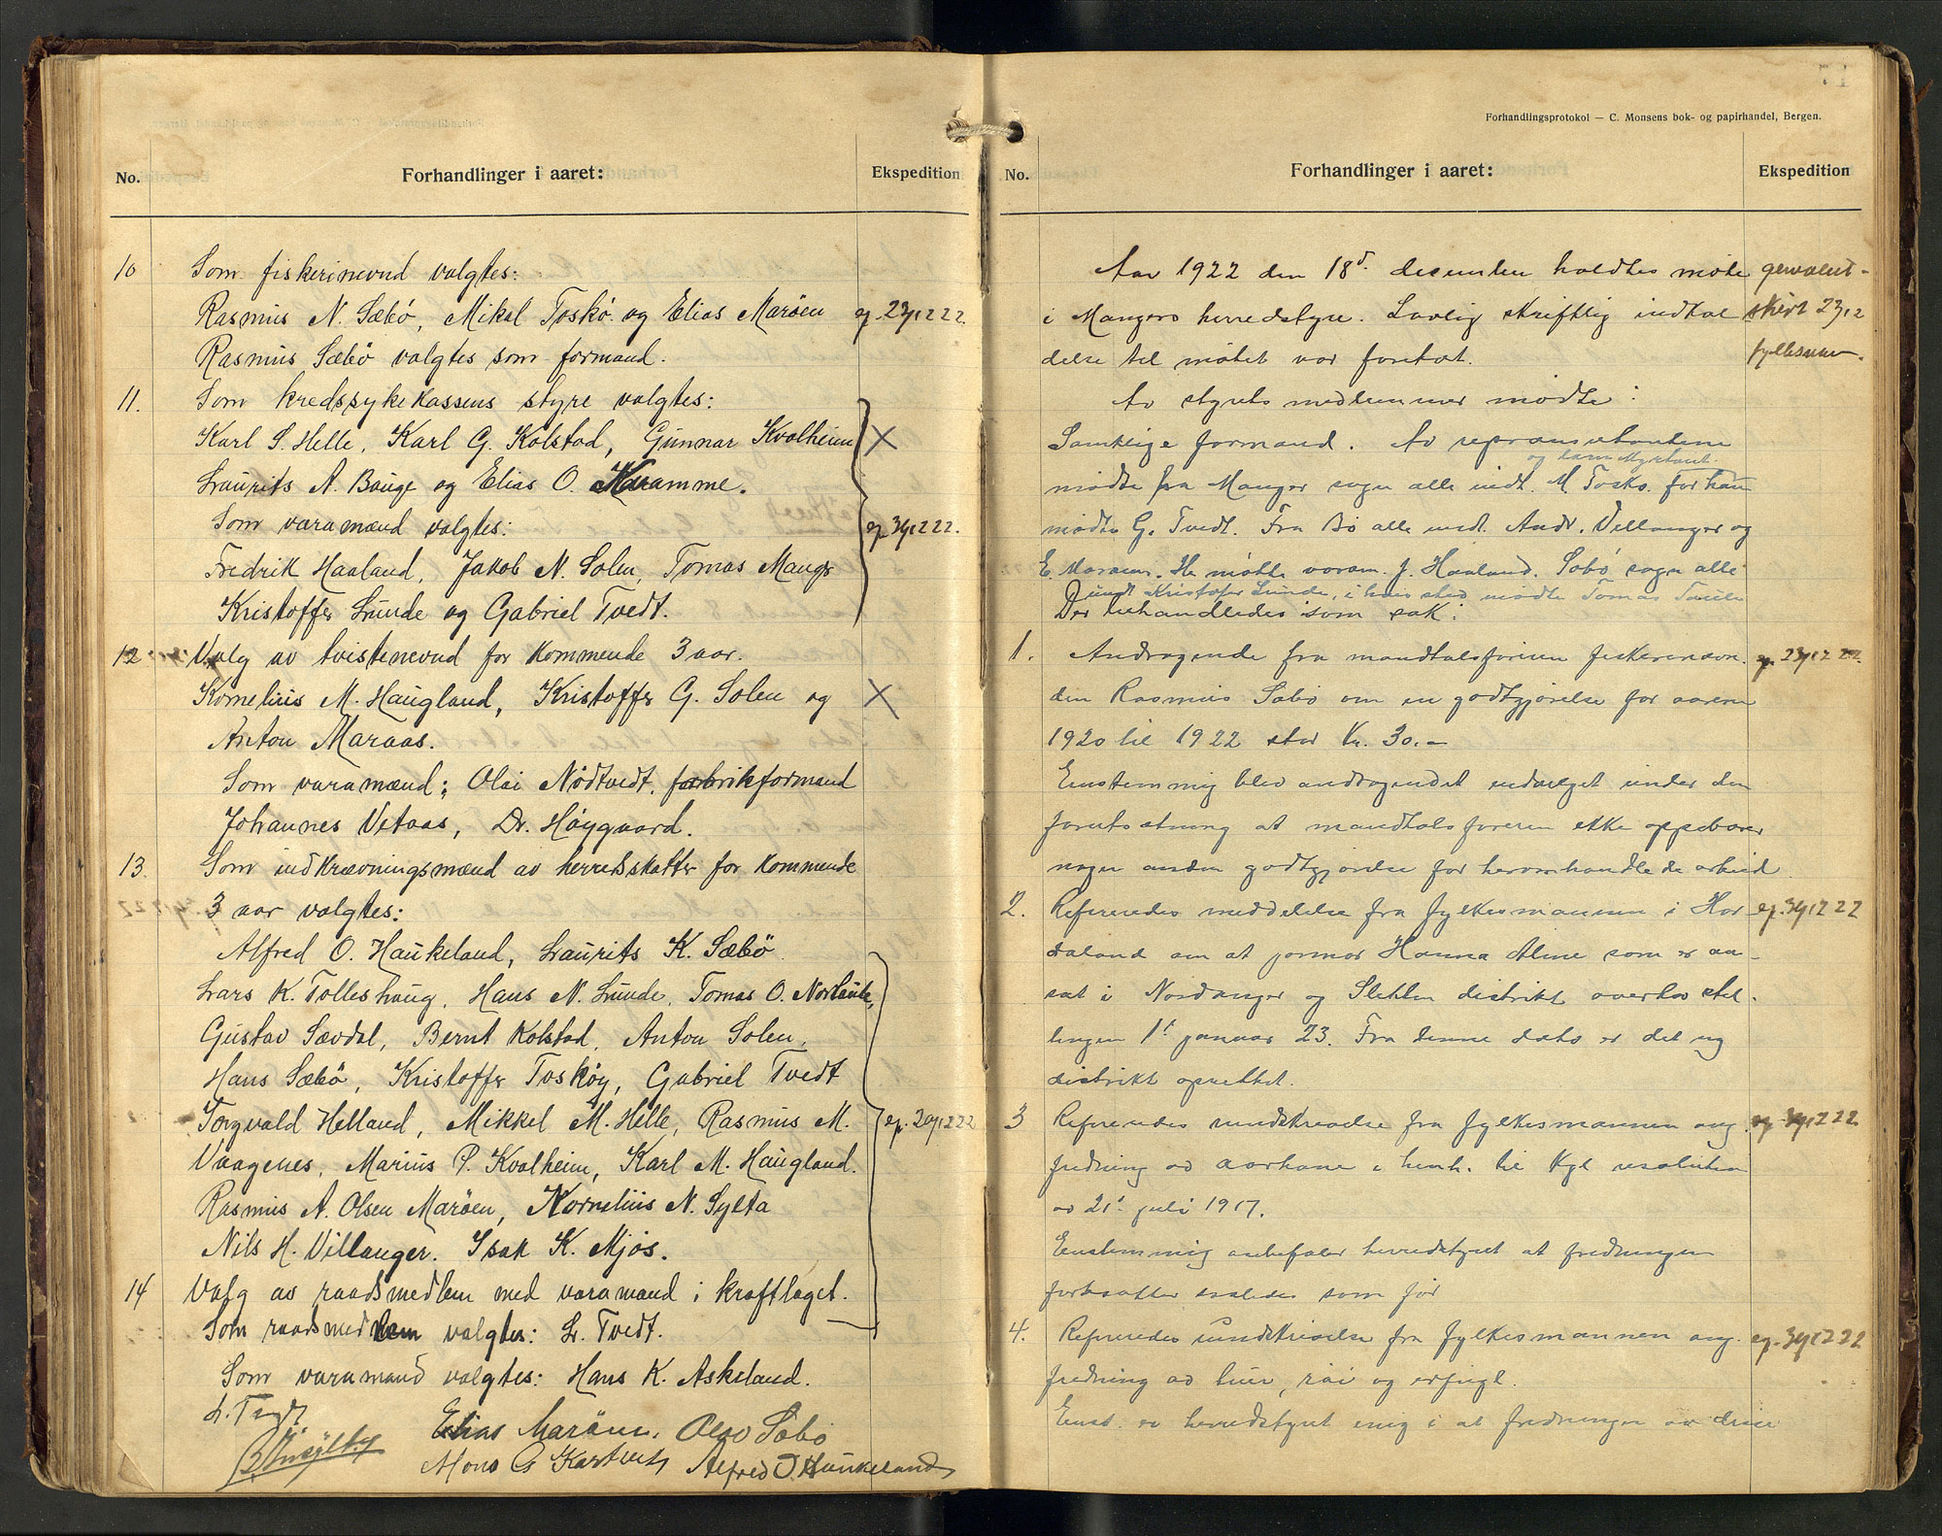 No.
Forhandlinger i aaret:
Ekspedition
10 Som fiskerinevnd valgtes:
Rasmus N. Sæbö, Mikal Toskö og Elias Maröen
Rasmus Sæbö valgtes som formand.
11. Som kredssykekassens styre valgtes:
Karl S. Helle, Karl G. Kolstad, Gunnar Kvalheim
Laurits A. Bauge og Elias O. Kramme.
Som varamænd valgtes:
Fredrik Haaland, Jakob N. Solen, Tomas Mangr
Kristoffer Lunde og Gabriel Tvedt.
12 Valg av tvistenevnd for kommende 3 aar.
Kornelius M. Haugland, Kristoffer G. Solen og
Anton Maraas.
Som varamænd: Olai Nödtvedt, fabrikformand
Johannes Vetaas, Dr. Höygaard.
13. Som indkrævningsmænd av herredsskatter for kommende
3 aar valgtes:
Alfred O. Haukeland, Laurits K. Sæbö
Lars K. Tolleshaug, Hans N. Lunde, Tomas O. Nordeide,
Gustav Sævdal, Bernt Kolstad, Anton Solen,
Hans Sæbö, Kristoffer Tosköy, Gabriel Tvedt
Torgvald Helland, Mikkel M. Helle, Rasmus M.
Vaagenes, Marius P. Kvalheim, Karl M. Haugland.
Rasmus A. Olsen Maröen, Kornelius N. Sylta
Nils H. Villanger. Isak K. Mjös.
14 Valg av raadsmedlem med varamand i kraftlaget.
Som raadsmedlem valgtes: L. Tvedt.
Som varamand valgtes: Hans K. Askeland.
L. Tvedt
Elias Maröen, Olav Sæbö
Mons Kartveit, Alfred O Haukeland
Forhandlingsprotokol — C. Monsens bok- og papirhandel, Bergen.
No.
Forhandlinger i aaret:
Ekspedition
Aar 1922 den 18d. desember holdtes møte
i Mangers herredstyre. Lovlig skriftlig indkal
delse til møtet var foretat.
Av styrets medlemmer mødte:
Samtlige formænd. Av representantene
og
mødte fra Manger sogn alle undt. M. Toskö. for han
mødte G. Tvedt. Fra Bö alle undt. Andr. Villanger og
E. Maröen. H. mødte varam. J. Haaland. Sæbö sogn alle
undt Kristofer Lunde, i hans sted mødte Tomas
Der behandledes som sak:
1. Andragende fra mandtalsføreren
den Rasmus Sæbö om en godtgjørelse for aarene
1920 til 1922 stor kr. 30.–
Enstemmig blev andragendet indvilget under den
forutsetning at mandtalsføreren ikke oppebærer
nogen anden godtgjørelse for heromhandlede arbeid
2. Refereredes meddelelse fra fylkesmannen i Hor
daland om at jormor Hanna Alme som er an-
sat i Nordanger og Sletten distrikt overtar stil-
lingen 1ste januar 23. Fra denne dato er det ny
distrikt oprettet.
3 Refereredes rundskrivelse fra fylkesmannen ang.
fredning av aarhane i henh. til kgl resolution
av 21de juli 1917.
Enstemmig anbefaler herredstyret at fredningen
fortsætter saaledes som før
4. Refereredes rundskrivelse fra fylkesmannen ang.
fredning av
Enst. er herredstyret enig i at fredningen av disse